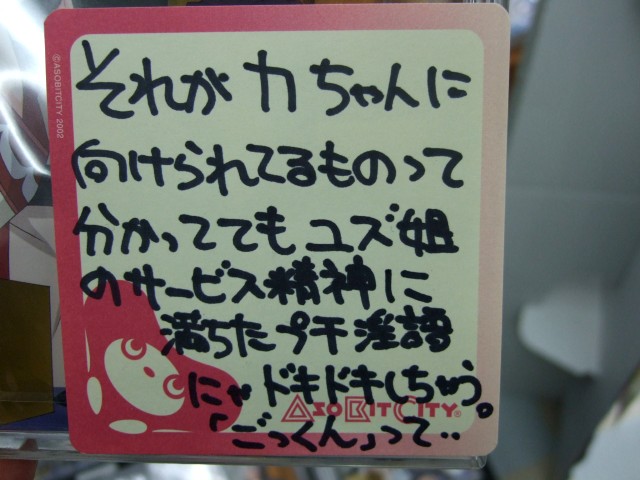 ©ASOBITCITY 2002
それがカちゃんに
向けられてるものって
分かっててもユズ姐
のサービス精神に
満ちたプチ淫語
にゃドキドキしちゃう。
ASOBITCITY®
「ごっくん」って‥